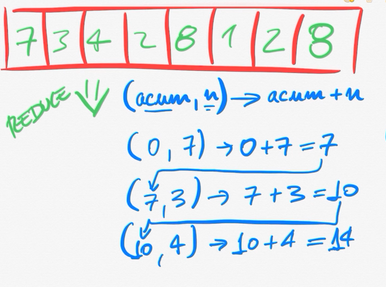 7 3 4 2 8 1 2 8
REDUCE (acum, n) → acum + n
(0, 7) → 0 + 7 = 7
(7, 3) → 7 + 3 = 10
(10, 4) → 10 + 4 = 14